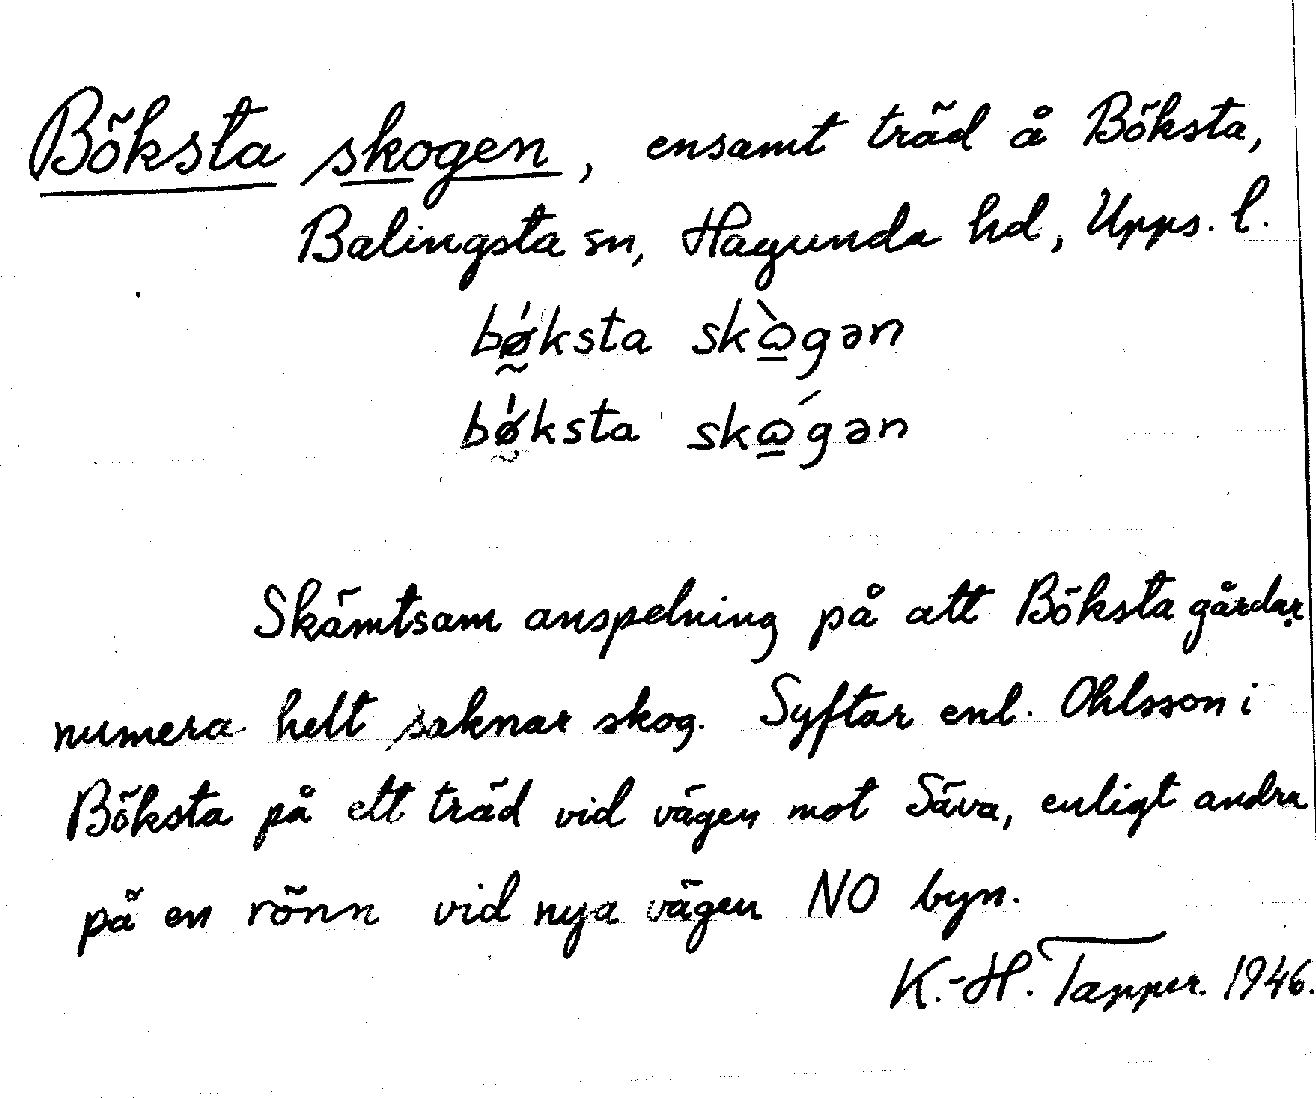 Böksta skogen, ensamt träd å Böksta,
Balingsta sn, Hagunda hd, Upps. l.
bǿ̰ksta skɷ̱̀gən
bǿ̰ksta skɷ̱́gən
Skämtsam anspelning på att Böksta gårdar
numera helt saknar skog. Syftar enl. Ohlsson i
Böksta på ett träd vid vägen mot Säva, enligt andra
på en rönn vid nya vägen NO byn.
K.-H. Tapper. 1946.